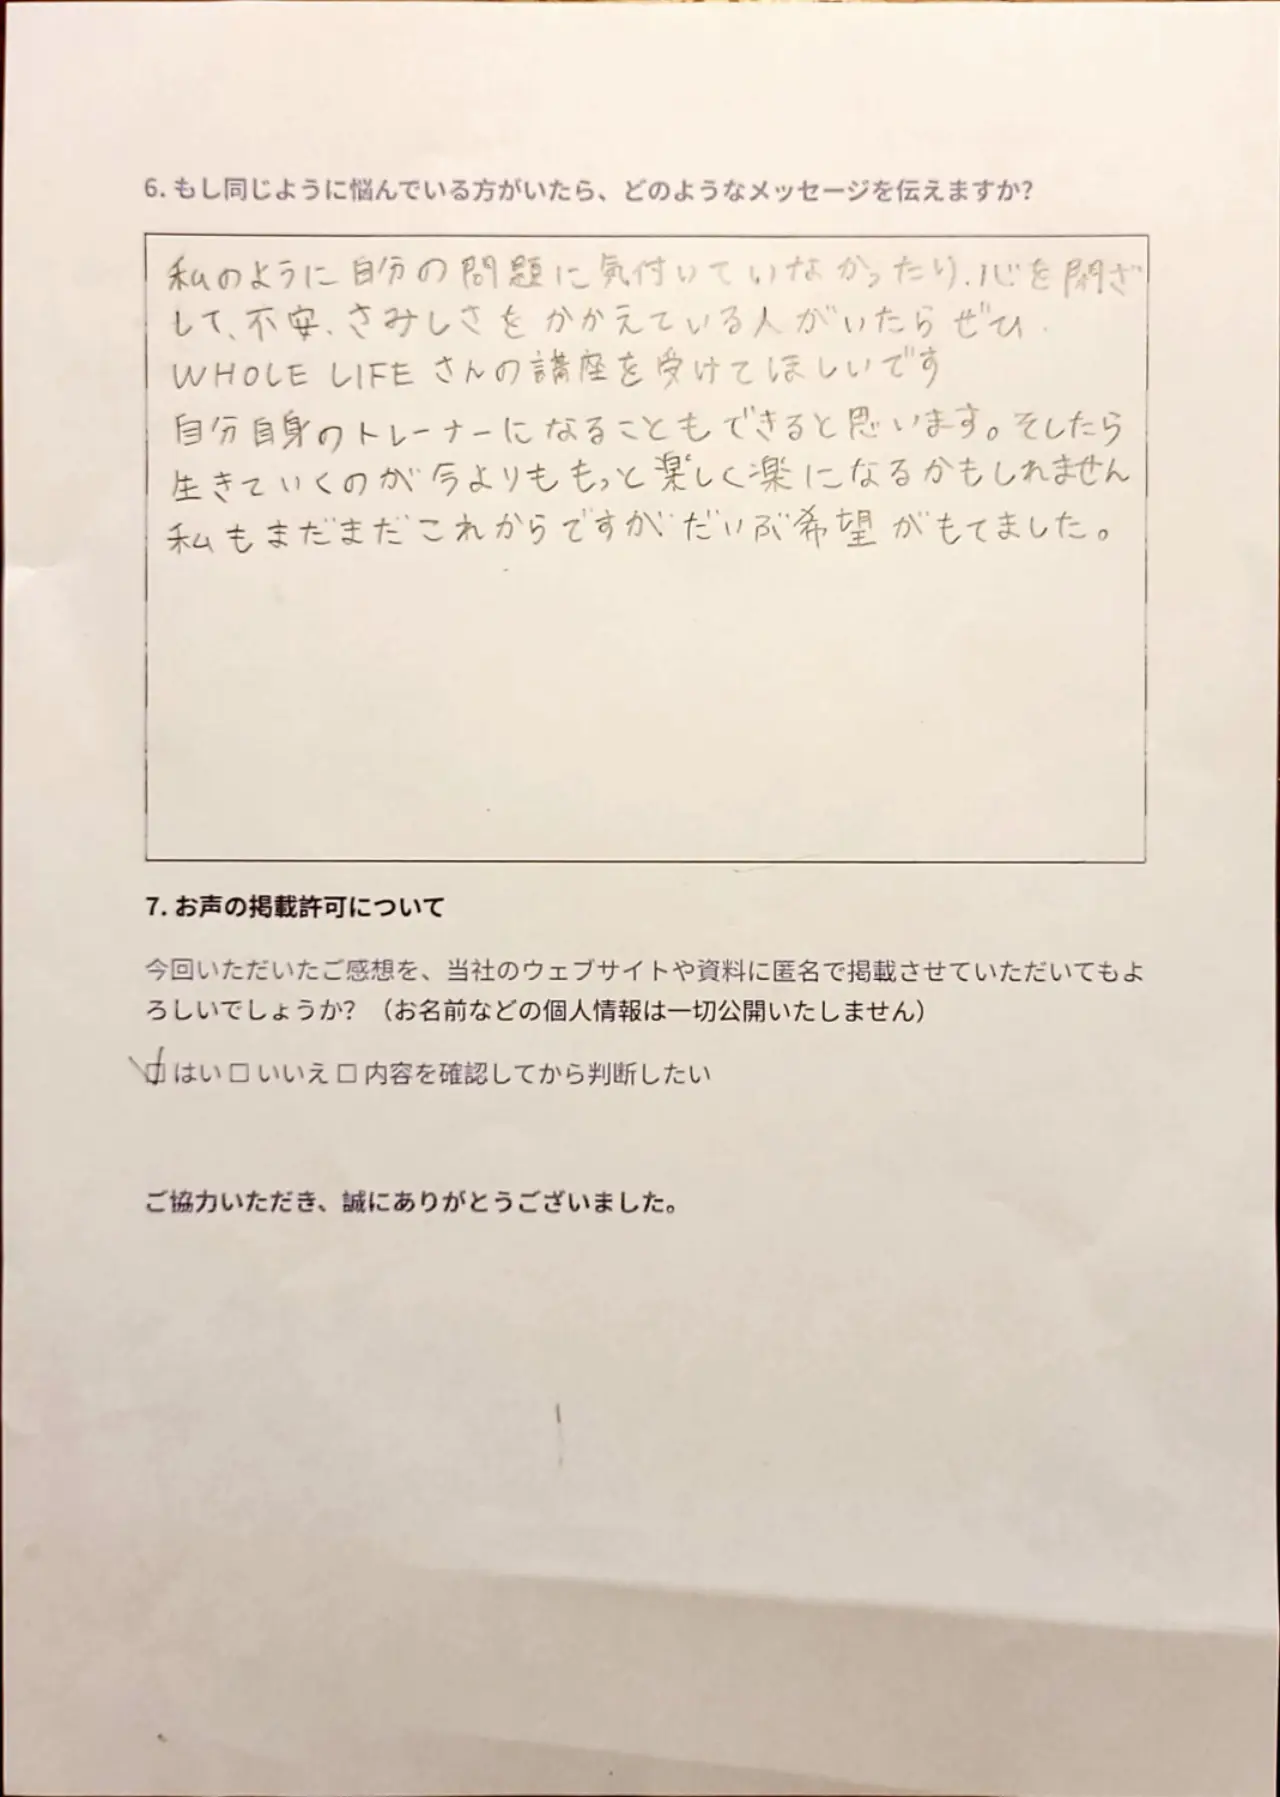 6. もし同じように悩んでいる方がいたら、どのようなメッセージを伝えますか?
私のように自分の問題に気付いていなかったり、心を閉ざ
して、不安、さみしさをかかえている人がいたらぜひ、
WHOLE LIFEさんの講座を受けてほしいです
自分自身のトレーナーになることもできると思います。そしたら
生きていくのが今よりももっと楽しく楽になるかもしれません
私もまだまだこれからですがだいぶ希望がもてました。
7. お声の掲載許可について
今回いただいたご感想を、当社のウェブサイトや資料に匿名で掲載させていただいてもよ
ろしいでしょうか? （お名前などの個人情報は一切公開いたしません）
☑ はい □ いいえ □ 内容を確認してから判断したい
ご協力いただき、誠にありがとうございました。